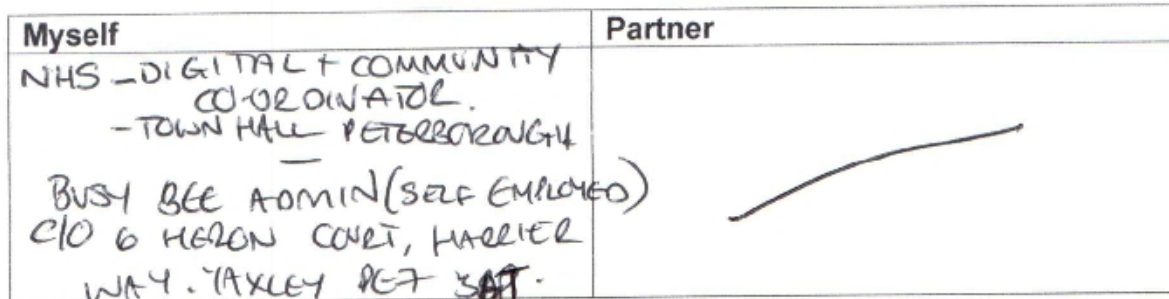 Myself
Partner
NHS - DIGITAL + COMMUNITY
CO-ORDINATOR.
- TOWN HALL PETERBOROUGH
—
BUSY BEE ADMIN (SELF EMPLOYED)
C/O 6 HERON COURT, HARRIER
WAY. YAXLEY PE7